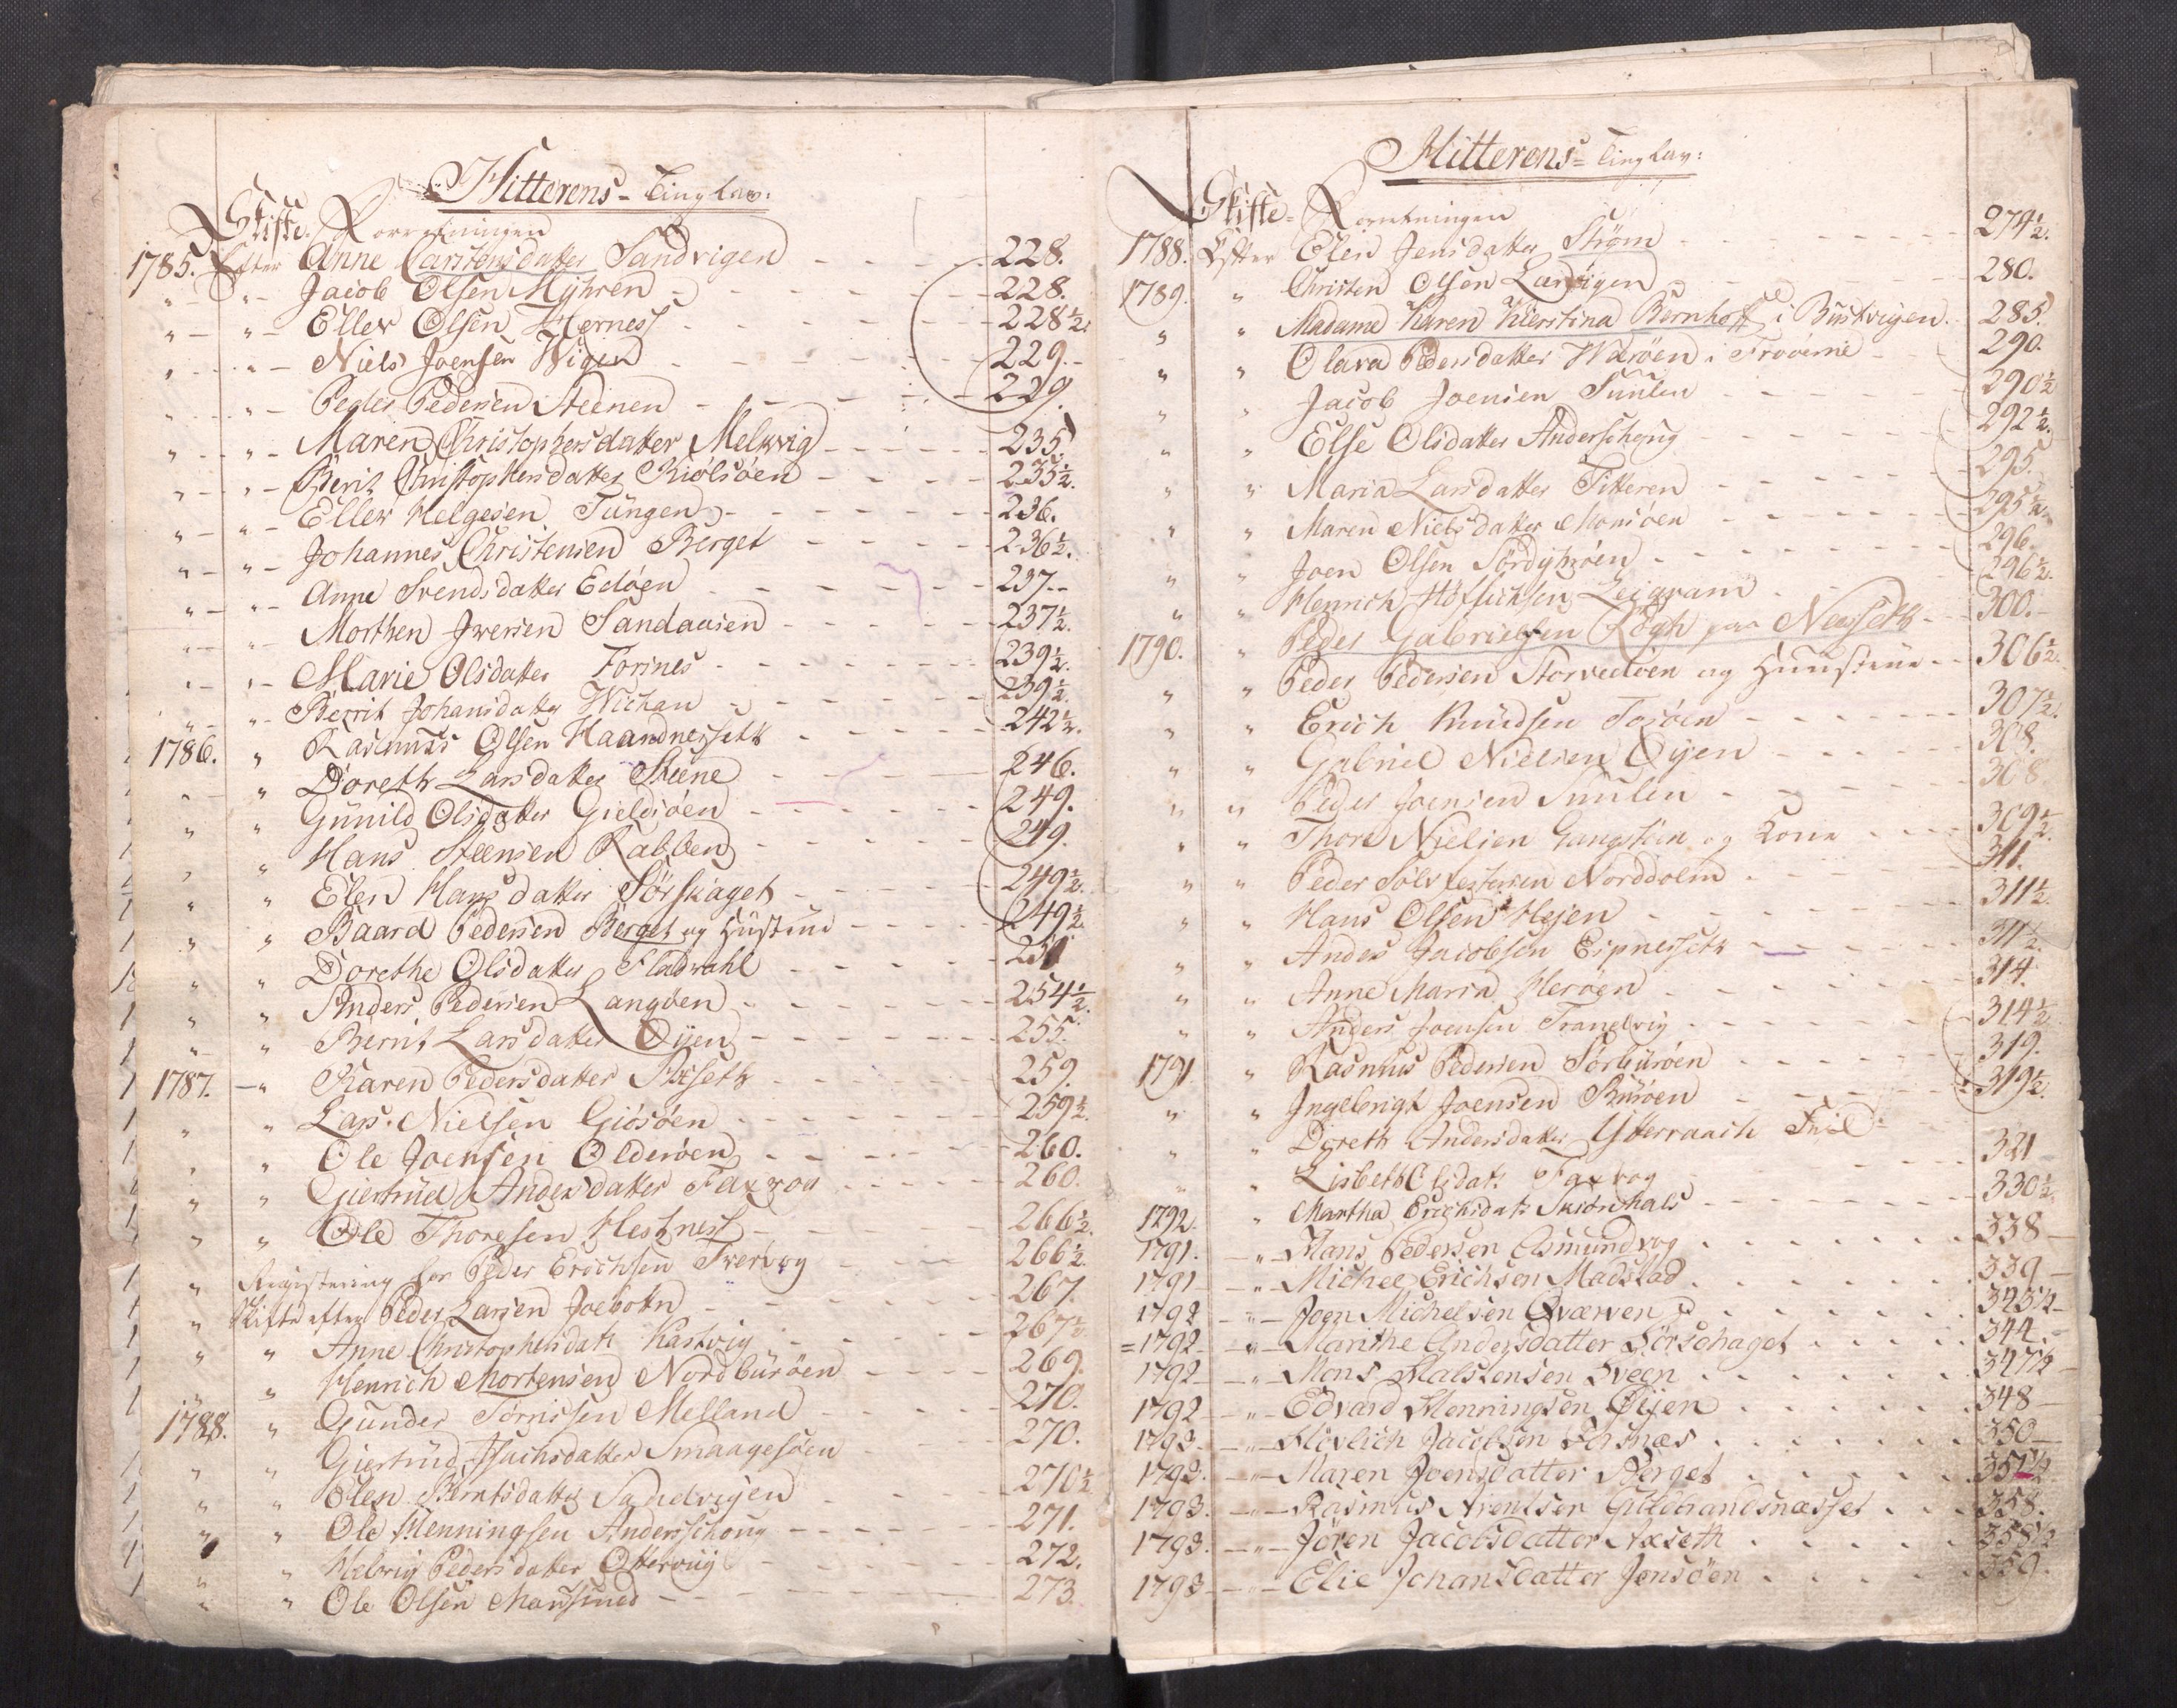 Hitterens - Tinglav:
Skifte. Forretningen
1785. Efter Anne Carstensdatter Sandvigen - - - - 228.
" - " - Jacob Olsen Myhren - - - - 228.
" - " - Eller Olsen Herness - - - - 228½.
" - " - Niels Joensen Wigen - - - - 229.
" - " - Peder Pedersen Steenen - - - - 229.
" - " - Maren Christophersdatter Melkvig - - - - 235.
" - " - Berit Christophersdatter Kiølsøen - - - - 235½.
" - " - Eller Helgesen Tungen - - - - 236.
" - " - Johannes Christensen Berget - - - - 236½.
" - " - Anne Svendsdatter Edøen - - - - 237.
" - " - Morthen Iversen Sandaasen - - - - 237½.
" - " - Marie Olsdatter Forsnes - - - - 239½.
" - " - Berrit Johansdatter Wichan - - - - 239½.
1786. " Rasmus Olsen Haandnessett - - - - 242½.
" " Doreth Larsdatter Steene - - - - 246.
" " Gunild Olsdatter Gieldsøen - - - - 249.
" " Hans Steensen Rabben - - - - 249.
" " Elen Hansdatter Sørskaget - - - - 249½.
" " Baard Pedersen Berget og Hustrue - - - - 249½.
" " Dorethe Olsdatter Fladvahl - - - - 251
" " Anders Pedersen Langøen - - - - 254½.
" " Berrit Larsdatter Øyen - - - - 255.
1787. - " Karen Pedersdatter Axseth - - - - 259.
" " Lars Nielsen Giøsøen - - - - 259½.
" " Ole Joensen Olderøen - - - - 260.
" " Giertrud Andersdatter Faxvog - - - - 260.
" " Ole Thoresen Hestness - - - - 266½.
" Registering for Peder Erichsen Tvervog - - - - 266½.
" Skifte efter Peder Larsen Joebotn - - - - 267.
" " Anne Christophersdatt Kastvig - - - - 267½
" " Henrich Mortensen Nordburøen - - - - 269.
1788. " Gunder Tørrissen Melland - - - - 270.
" " Giertrud Isachsdatter Smaagesøen - - - - 270.
" " Elen Berntsdatter Sandvigen - - - - 270½
" " Ole Henningsen Andersschoug - - - - 271.
" " Helvig Pedersdatter Ottervig - - - - 272.
" " Ole Olsen Mausund - - - - 273.
Hitterens - Tinglav:
Skifte - Forretningen
1788. Efter Elen Jensdatter Strøm - - - - 274½.
1789. " Christen Olsen Larvigen - - - - 280.
" " Madame Karen Kierstina Bernhoft i Buskvigen 285.
" " Olava Pedersdatter Wærøen i Froøerne - 290.
" " Jacob Joensen Suulen - - - - 290½
" " Else Olsdatter Anderschoug - - - - 292½.
" " Maria Larsdatter Titteren - - - - 295.
" " Maren Nielsdatter Monsøen - - - - 295½.
" " Joen Olsen Sørdyhrøen - - - - 296.
" " Henrich - - - - 296½.
1790. " Peder Gabrielsen paa - 300.
" " Peder Pedersen og Hunstrue - - 306½.
" " Erich Knudsen - - - - 307½.
" " Gabriel Nielsen Øyen - - - - 308.
" " Peder Joensen Suulen - - - - 308
" " Thore Nielsen og Kone - - - - 309½.
" " Peder Norddolm - - - - 311.
" " Hans Olsen Hejen - - - - 311½.
" " Anders Jacobsen Espnesset - - - - 311½.
" " Anne Maria Herøen - - - - 314.
" " Anders Joensen Tranvig - - - - 314½
1791. " Rasmus Pedersen Sørburøen - - - - 319.
" " Ingebrigt Joensen Burøen - - - - 319½.
" " Doreth Andersdatter
" " Lisbeth Olsdatt. Faxvog - - - - 321
1792. " Martha Erichsdatt Skiønhals - - - - 330½.
1791. - " - Hans Pedersen Asmundvog . . . . 338 -
1791 - " - Michel Erichsen Madstad . . . . 339 -
1792 - " - Joen Michelsen Qværven . . . . 343½ -
= 1792 - " - Marithe Andersdatter Sørschaget . . . . 344. -
1792 - " - Mons Halstensen Sveen . . . . 347½ -
1792 - " - Edvard Henningsen Øijen . . . . 348 -
1793 - " - Jacobsen Forsnæs . . . . 350 -
1793. - " - Maren Joensdatter Berget . . . . 351½
1793. - " - Rasmus Arentsen Gildbrandsnæsset . . . 358.
1793. - " - Jøren Jacobsdatter Axseth . . . . 358½
1793 - " - Elie Johansdatter Jensøen . . . . 359.